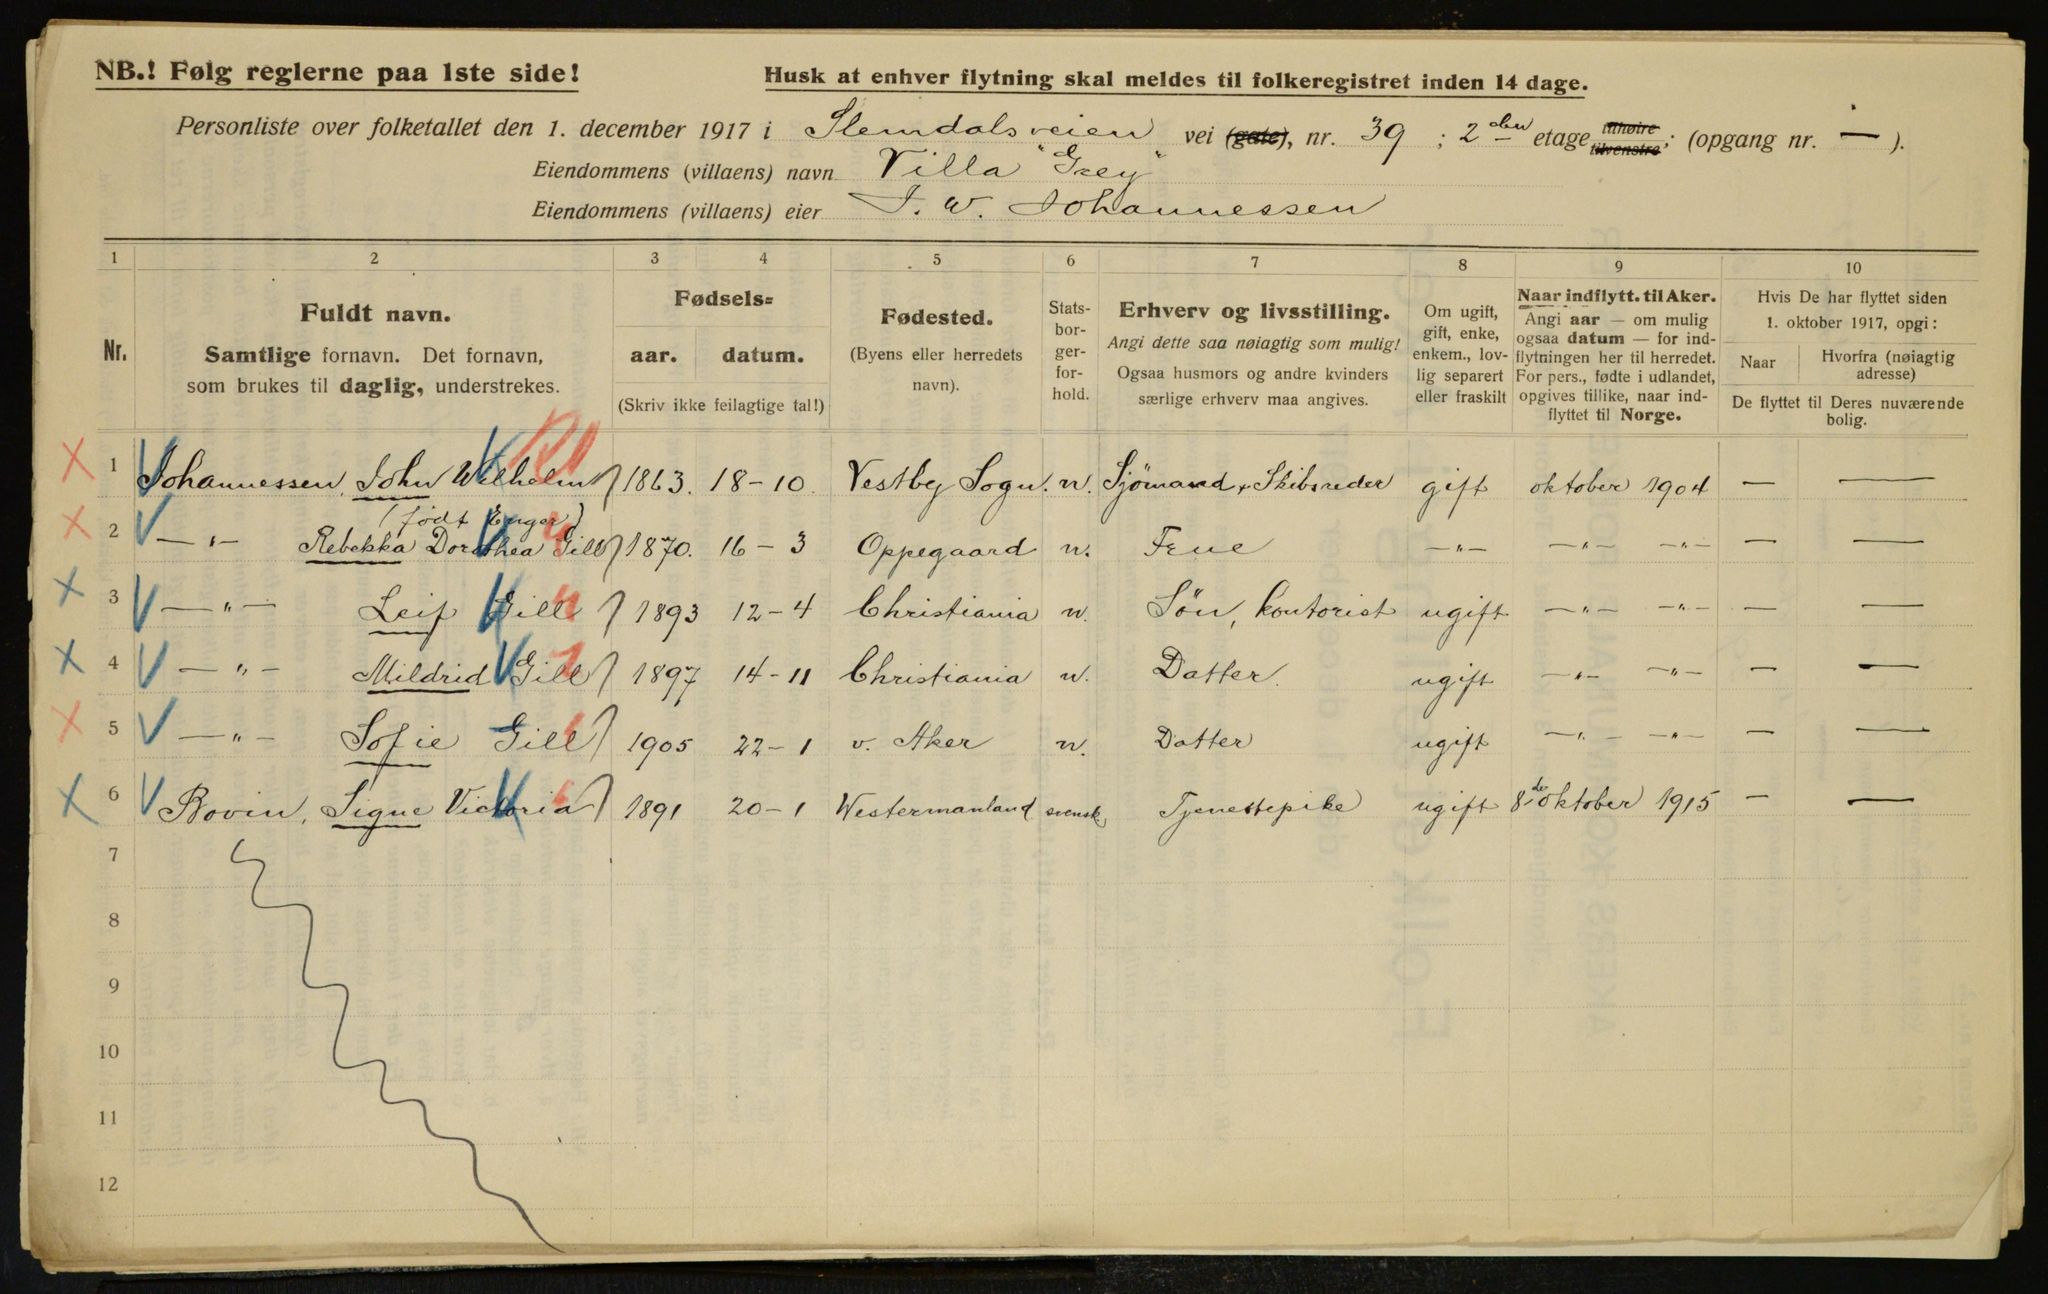 NB.! Følg reglerne paa 1ste side!
Husk at enhver flytning skal meldes til folkeregistret inden 14 dage.
Personliste over folketallet den 1. december 1917 i Slemdalsveien vei (gate), nr. 39 ; 2den etage tilhøire tilvenstre; (opgang nr. — ).
Eiendommens (villaens) navn Villa "Grey"
Eiendommens (villaens) eier J. W. Johannessen
1 2 3 4 5 6 7 8 9 10
Nr.
Fuldt navn.
Samtlige fornavn. Det fornavn,
som brukes til daglig, understrekes.
Fødsels-
aar. datum.
(Skriv ikke feilagtige tal!)
Fødested.
(Byens eller herredets
navn).
Stats-
bor-
ger-
for-
hold.
Erhverv og livsstilling.
Angi dette saa nøiagtig som mulig!
Ogsaa husmors og andre kvinders
særlige erhverv maa angives.
Om ugift,
gift, enke,
enkem., lov-
lig separert
eller fraskilt
Naar indflytt. til Aker.
Angi aar — om mulig
ogsaa datum — for ind-
flytningen her til herredet.
For pers., fødte i udlandet,
opgives tillike, naar ind-
flyttet til Norge.
Hvis De har flyttet siden
1. oktober 1917, opgi:
Naar
Hvorfra (nøiagtig
adresse)
De flyttet til Deres nuværende
bolig.
1 Johannessen, John Wilhelm 1863. 18-10. Vestby Sogn. n. Sjömand & Skibsreder gift oktober 1904 — —
(født Enger)
2 —"— Rebekka Dorothea Gill 1870. 16-3 Oppegaard n. Frue —"— —"— —"— — —
3 —"— Leif Gill 1893 12-4 Christiania n. Sön, kontorist ugift —"— —"— — —
4 —"— Mildrid Gill 1897 14-11 Christiania n. Datter. ugift —"— —"— — —
5 —"— Sofie Gill 1905 22-1 v. Aker n. Datter ugift —"— —"— — —
6 Bovin, Signe Victoria 1891 20-1 Westermanland svensk. Tjenestepike ugift 8de oktober 1915 — —
7
8
9
10
11
12